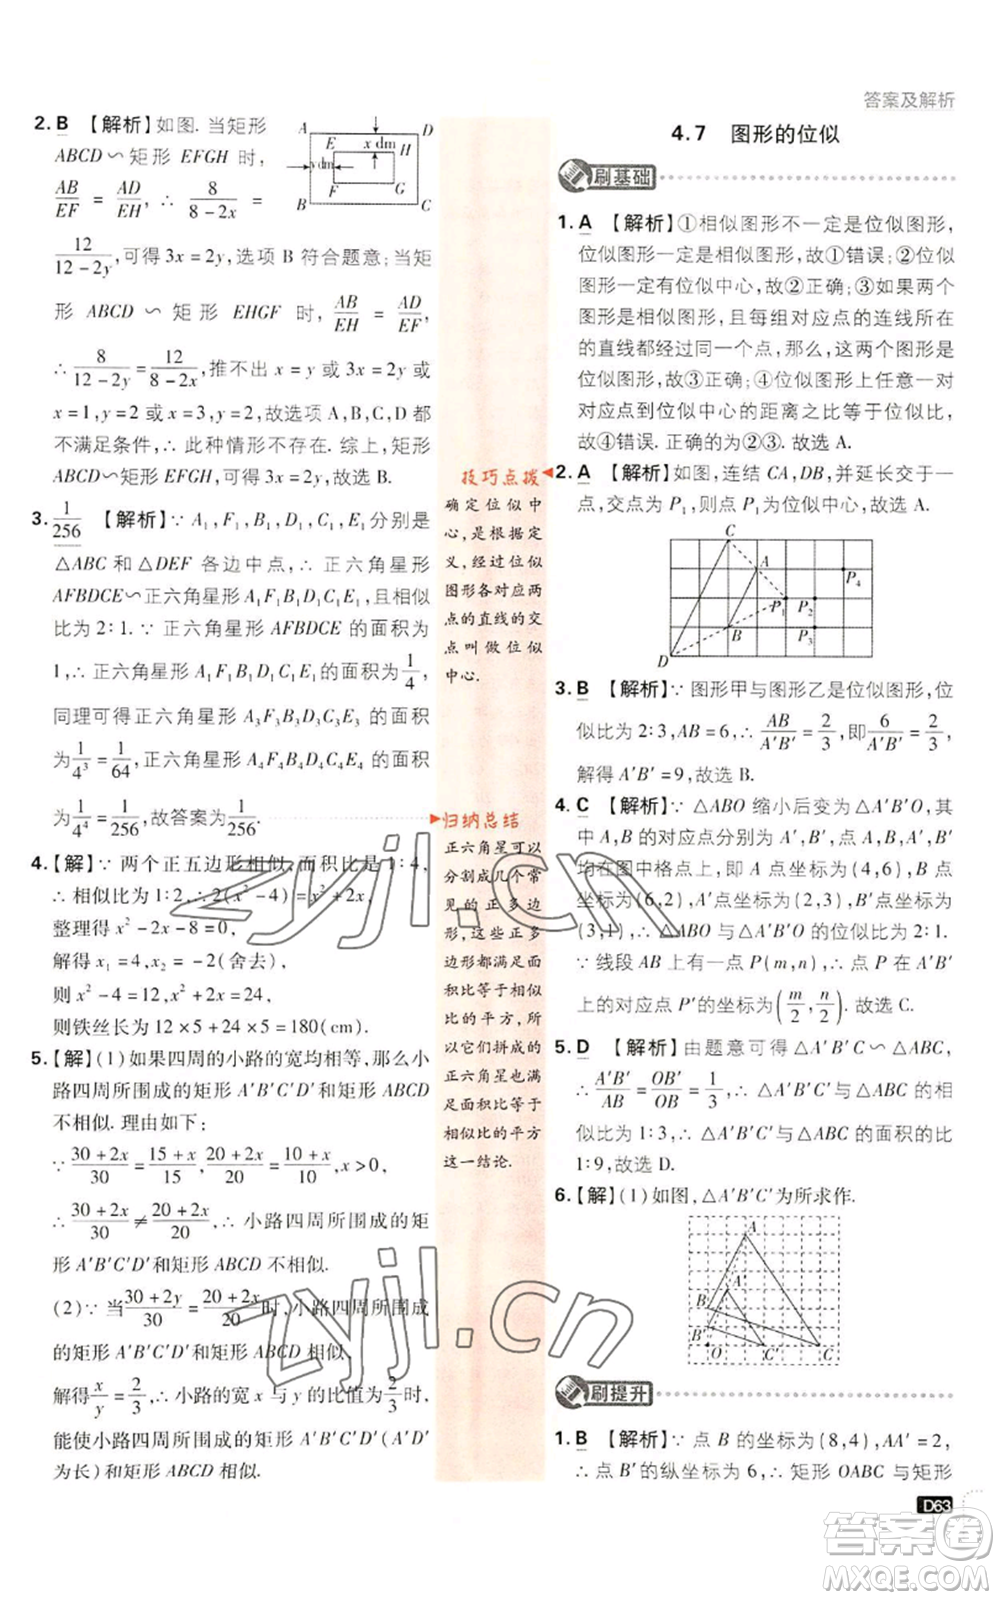 答案及解析
2. B 【解析】如图. 当矩形
ABCD∽矩形 EFGH 时,
AB/EF = AD/EH, ∴ 8/(8-2x) =
12/(12-2y),可得 3x=2y,选项 B 符合题意;当矩
形 ABCD ∽ 矩形 EHGF 时, AB/EH = AD/EF,
∴ 8/(12-2y) = 12/(8-2x),推不出 x=y 或 3x=2y 或
x=1,y=2 或 x=3,y=2,故选项 A,B,C,D 都
不满足条件,∴ 此种情形不存在. 综上,矩形
ABCD∽矩形 EFGH,可得 3x=2y,故选 B.
A
D
E
x dm
H
y dm
F
G
B
C
3. 1/256 【解析】∵ A₁,F₁,B₁,D₁,C₁,E₁分别是
△ABC 和 △DEF 各边中点,∴ 正六角星形
AFBDCE∽正六角星形 A₁F₁B₁D₁C₁E₁,且相似
比为 2∶1. ∵ 正六角星形 AFBDCE 的面积为
1,∴ 正六角星形 A₁F₁B₁D₁C₁E₁ 的面积为 1/4,
同理可得正六角星形 A₃F₃B₃D₃C₃E₃ 的面积
为 1/4³ = 1/64,正六角星形 A₄F₄B₄D₄C₄E₄ 的面积
为 1/4⁴ = 1/256,故答案为 1/256.
4. 【解】∵ 两个正五边形相似,面积比是 1∶4,
∴ 相似比为 1∶2,∴2(x²-4)=x²+2x,
整理得 x²-2x-8=0,
解得 x₁=4,x₂=-2(舍去),
则 x²-4=12,x²+2x=24,
则铁丝长为 12×5+24×5=180(cm).
5. 【解】(1)如果四周的小路的宽均相等,那么小
路四周所围成的矩形 A′B′C′D′和矩形 ABCD
不相似. 理由如下:
∵ (30+2x)/30 = (15+x)/15, (20+2x)/20 = (10+x)/10, x>0,
∴ (30+2x)/30 ≠ (20+2x)/20, ∴ 小路四周所围成的矩
形 A′B′C′D′和矩形 ABCD 不相似.
(2)∵ 当 (30+2y)/30 = (20+2x)/20 时,小路四周所围成
的矩形 A′B′C′D′和矩形 ABCD 相似,
解得 x/y = 2/3,∴ 小路的宽 x 与 y 的比值为 2/3 时,
能使小路四周所围成的矩形 A′B′C′D′(A′D′
为长)和矩形 ABCD 相似.
技巧点拨
确定位似中
心,是根据定
义,经过位似
图形各对应两
点的直线的交
点叫做位似
中心.
归纳总结
正六角星可以
分割成几个常
见的正多边
形,这些正多
边形都满足面
积比等于相似
比的平方,所
以它们拼成的
正六角星也满
足面积比等于
相似比的平方
这一结论.
4.7 图形的位似
刷基础
1. A 【解析】①相似图形不一定是位似图形,
位似图形一定是相似图形,故①错误;②位似
图形一定有位似中心,故②正确;③如果两个
图形是相似图形,且每组对应点的连线所在
的直线都经过同一个点,那么,这两个图形是
位似图形,故③正确;④位似图形上任意一对
对应点到位似中心的距离之比等于位似比,
故④错误. 正确的为②③. 故选 A.
2. A 【解析】如图,连结 CA,DB,并延长交于一
点,交点为 P₁,则点 P₁为位似中心,故选 A.
C
A
P₄
P₁
P₂
B
P₃
D
3. B 【解析】∵ 图形甲与图形乙是位似图形,位
似比为 2∶3,AB=6,∴ AB/A′B′ = 2/3,即 6/A′B′ = 2/3,
解得 A′B′=9,故选 B.
4. C 【解析】∵ △ABO 缩小后变为△A′B′O,其
中 A,B 的对应点分别为 A′,B′,点 A,B,A′,B′
均在图中格点上,即 A 点坐标为(4,6),B 点坐
标为(6,2),A′点坐标为(2,3),B′点坐标为
(3,1),∴ △ABO 与△A′B′O 的位似比为 2∶1.
∵ 线段 AB 上有一点 P(m,n),∴ 点 P 在 A′B′
上的对应点 P′的坐标为(m/2, n/2). 故选 C.
5. D 【解析】由题意可得 △A′B′C′∽△ABC,
∴ A′B′/AB = OB′/OB = 1/3, ∴ △A′B′C′与△ABC 的相
似比为 1∶3,∴ △A′B′C′与△ABC 的面积的比
1∶9,故选 D.
6. 【解】(1)如图,△A′B′C′为所求作.
A
A′
B
B′
O
C′
C
刷提升
1. B 【解析】∵ 点 B 的坐标为(8,4),AA′=2,
∴ 点 B′的纵坐标为 6,∴ 矩形 OABC 与矩形
D63
zyjl.cn
zyjl.cn
答案卷
MXQE.COM